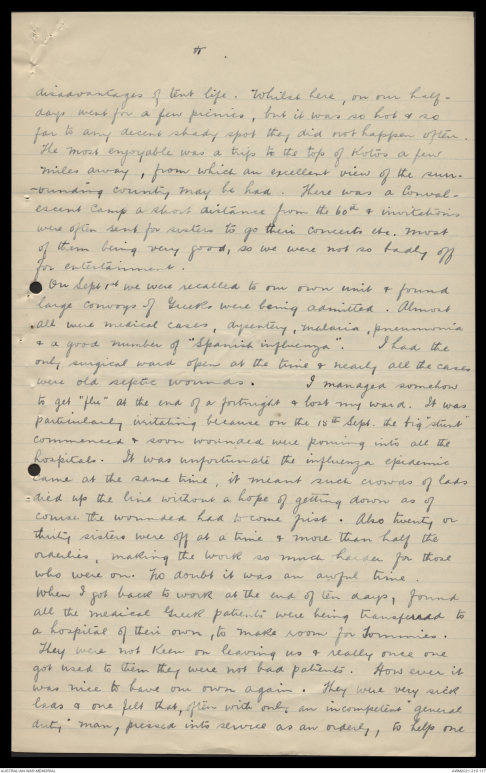 disadvantages of tent life. Whilst here, on our half-
days went for a few picnics, but it was so hot & so
far to any decent shady spot they did not happen often.
The most enjoyable was a trip to the top of Kotos a few
miles away, from which an excellent view of the surr-
-ounding country may be had. There was a Conval-
escent Camp a short distance from the 60th & invitations
were often sent for sisters to go their concerts etc. most
of them being very good, so we were not so badly off
for entertainment.
On Sept 1st we were recalled to our own unit & found
large convoys of Greeks were being admitted. Almost
all were medical cases, dysentery, malaria, pneumonia
& a good number of "Spanish influenza". I had the
only surgical ward open at the time & nearly all the cases
were old septic wounds. I managed somehow
to get "flu" at the end of a fortnight & lost my ward. It was
particularly irritating because on the 18th Sept. the big "stunt"
commenced & soon wounded were pouring into all the
hospitals. It was unfortunate the influenza epidemic
came at the same time, it meant such crowds of lads
died up the line without a hope of getting down as of
course the wounded had to come first. Also twenty or
thirty sisters were off at a time & more than half the
orderlies, making the work so much harder for those
who were on. No doubt it was an awful time.
When I got back to work at the end of ten days, found
all the medical Greek patients were being transferred to
a hospital of their own, to make room for Tommies.
They were not keen on leaving us & really once one
got used to them they were not bad patients. However it
was nice to have our own again. They were very sick
lads & one felt that, often with only an incompetent "general
duty" man, pressed into service as an orderly, to help one
AUSTRALIAN WAR MEMORIAL